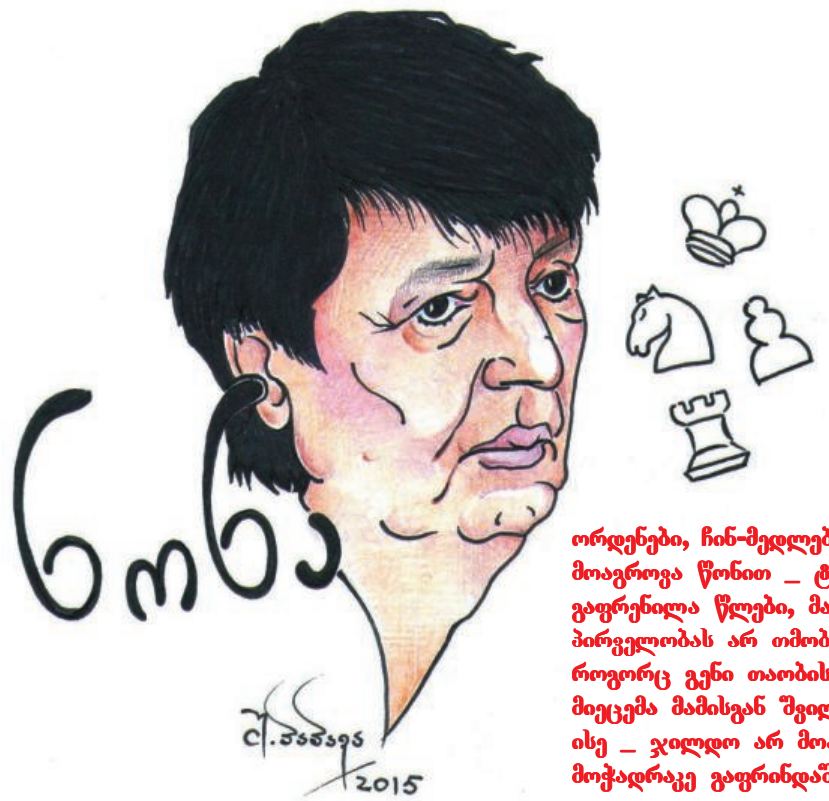 ნონა
შ.პაპავა
2015
ორდენები, ჩინ-მედლებ
მოაგროვა წონით _ ტ
გაფრენილა წლები, მა
პირველობას არ თმობ
როგორც გენი თაობის
მიეცემა მამისგან შვილ
ისე _ ჯილდო არ მოა
მოჭადრაკე გაფრინდაშ